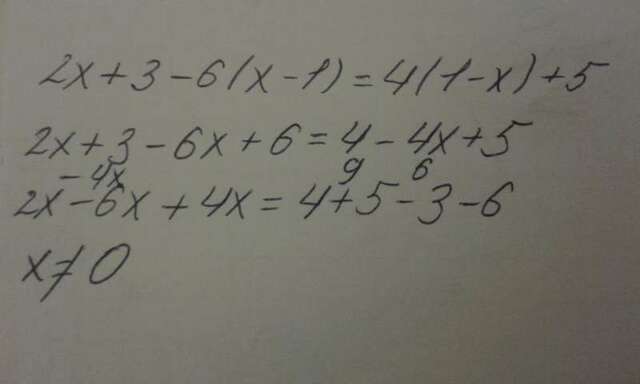 2x + 3 - 6(x - 1) = 4(1 - x) + 5
2x + 3 - 6x + 6 = 4 - 4x + 5
-4x 9 6
2x - 6x + 4x = 4 + 5 - 3 - 6
x ≠ 0